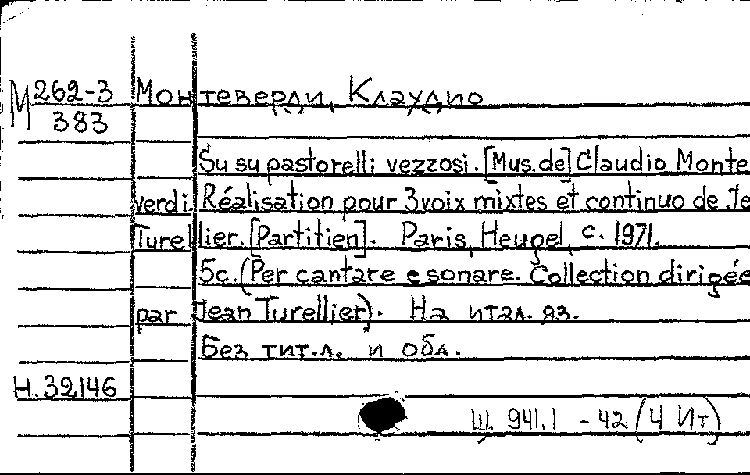 М 262-3 Монтеверди, Клаудио
383
Su su pastorelli vezzosi. [Mus. de] Claudio Monte
verdi. Réalisation pour 3 voix mixtes et continuo de Je
Turellier. [Partitien]. Paris, Heugel, c. 1971.
5c. (Per cantare e sonare. Collection dirigée
par Jean Turellier). На итал. яз.
Без тит.л. и обл.
Н. 32146
Щ 941.1 - 42 (4 Ит)